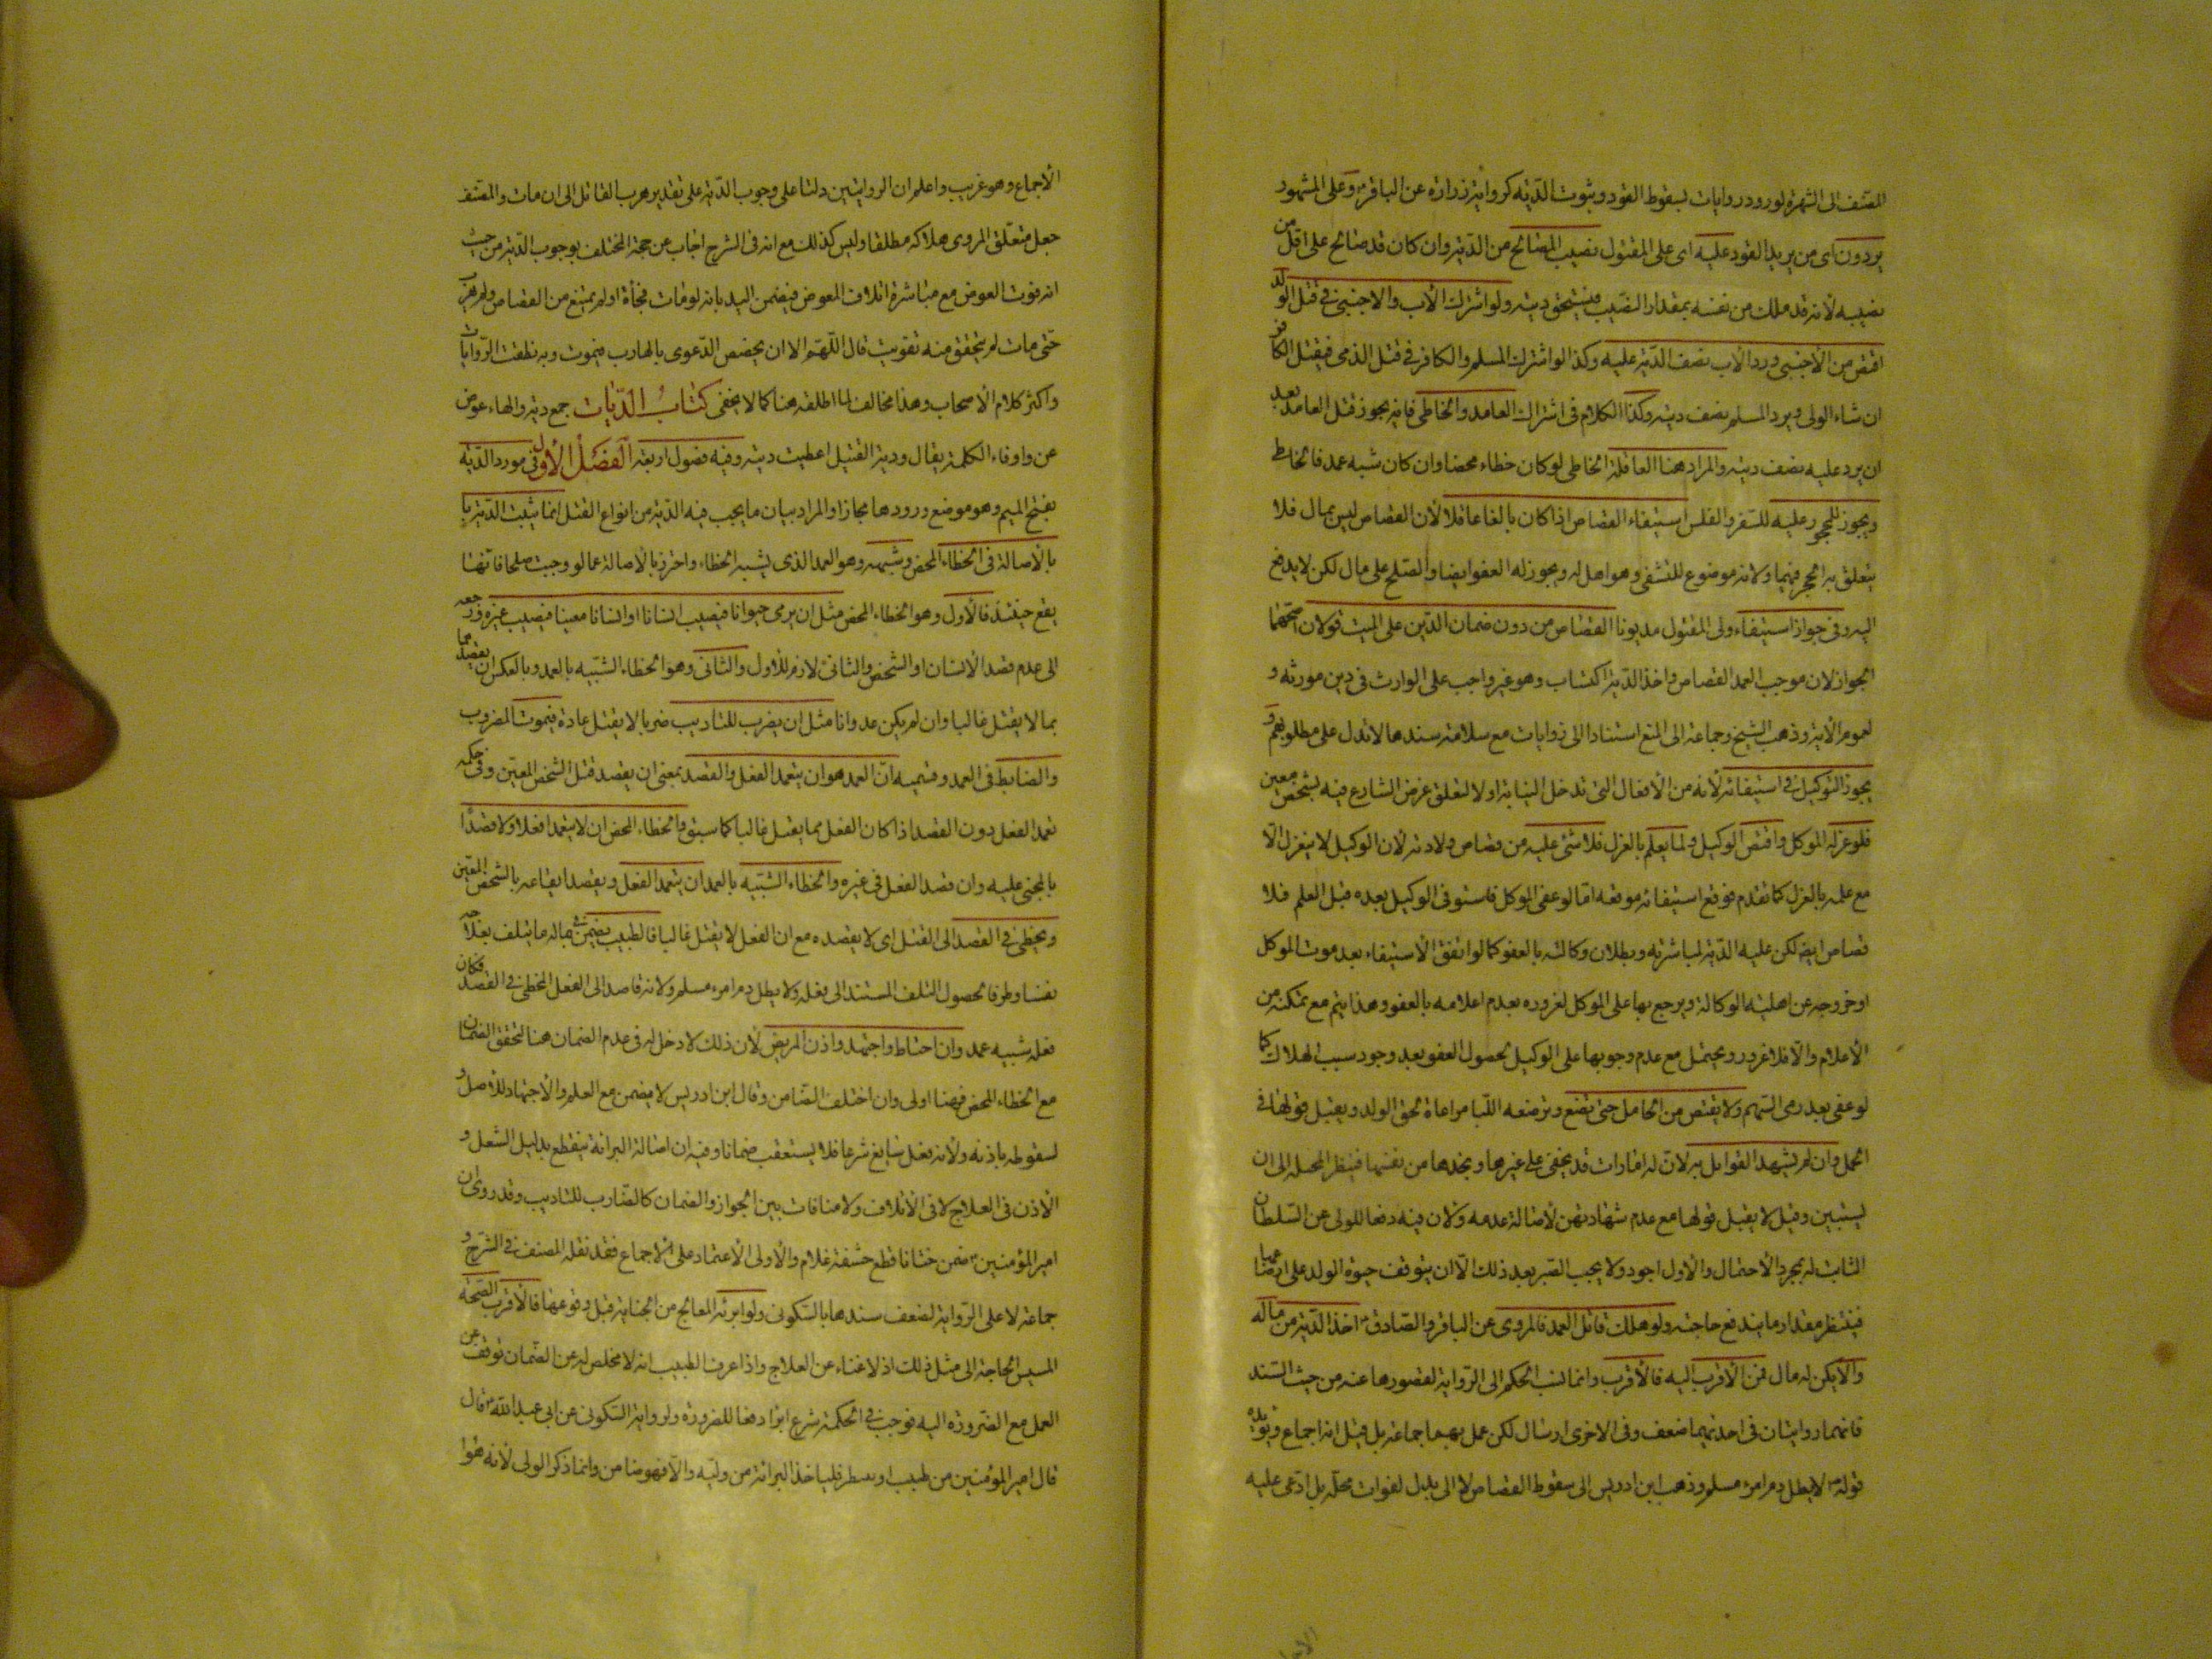 المصنف الى الشهرة لورود روايات بسقوط القود وثبوت الدية كرواية زرارة عن الباقر ع وعلى المشهور
يردون اى من يريد القود عليه اى على المقتول نصيب المصالح من الدية وان كان قد صالح على اقل من
نصيبه لانه قد ملك من نفسه بمقدار النصيب فيستحق ديته ولو اشترك الاب والاجنبى فى قتل الولد
اقتص من الاجنبى ورد الاب نصف الدية عليه وكذا لو اشترك المسلم والكافر فى قتل الذمى فيقتل الكافر
ان شاء الولى ويرد المسلم نصف ديته وكذا الكلام فى اشتراك العامد والخاطى فانه يجوز قتل العامد بعد
ان يرد عليه نصف ديته والمراد هنا العاقلة الخاطى لو كان خطاء محضا وان كان شبه عمد فالخاطى
ويجوز للمحجور عليه للسفه والفلس استيفاء القصاص اذا كان بالغا عاقلا لان القصاص ليس بمال فلا
يتعلق به الحجر فيهما ولانه موضوع للتشفى وهو اهل له ويجوز له العفو ايضا والصلح على مال لكن لا يدفع
اليه وفى جواز استيفاء ولى المقتول مديونا القصاص من دون ضمان الدين على الميت قولان اصحهما
الجواز لان موجب العمد القصاص واخذ الدية اكتساب وهو غير واجب على الوارث فى دين مورثه و
لعموم الاية وذهب الشيخ وجماعة الى المنع استنادا الى روايات مع سلامة سندها لا تدل على مطلوبهم و
يجوز التوكيل فى استيفائه لانه من الافعال التى تدخل النيابة اولا لتعلق غرض الشارع فيه بشخص معين
فلو عزله الموكل واقتص الوكيل ولما يعلم بالعزل فلا شئ عليه من قصاص ولا دية لان الوكيل لا ينعزل الا
مع علمه بالعزل كما تقدم فوقع استيفائه موقعه اما لو عفى الموكل فاستوفى الوكيل بعده قبل العلم فلا
قصاص ايضا لكن عليه الدية لمباشرته وبطلان وكالته بالعفو كما لو اتفق الاستيفاء بعد موت الموكل
او خروجه عن اهلية الوكالة ويرجع بها على الموكل لغروره بعدم اعلامه بالعفو وهذا يتم مع تمكنه من
الاعلام والا فلا غرور ويحتمل مع عدم وجوبها على الوكيل لحصول العفو بعد وجود سبب الهلاك كما
لو عفى بعد رمى السهم ولا يقتص من الحامل حتى تضع وترضعه اللبا مراعاة لحق الولد ويقبل قولها فى
الحمل وان لم يشهد القوابل به لان له امارات قد يخفى على غيرها ويجدها من نفسها فينظر المحيلة الى ان
ليستبين وقيل لا يقبل قولها مع عدم شهادتهن لاصالة عدمه ولان فيه دفعا للولى عن السلطان
الثابت له بمجرد الاحتمال والاول اجود ولا يجب الصبر بعد ذلك الا ان يتوقف حيوة الولد على ارضاعها
فينتظر مقدار ما يندفع حاجته ولو هلك قاتل العمد فالمروى عن الباقر والصادق ع اخذ الدية من ماله
والا يكن له مال فمن الاقرب اليه فالاقرب وانما نسب الحكم الى الرواية لقصورها عنه من حيث السند
فانهما روايتان فى احديهما ضعف وفى الاخرى ارسال لكن عمل بهما جماعة بل قيل انه اجماع ويؤيده
قوله ع لا يطل دم امرء مسلم وذهب ابن ادريس الى سقوط القصاص لا الى بدل لفوات محله بل ادعى عليه
الاجماع وهو غريب واعلم ان الروايتين دلتا على وجوب الدية على تقدير هرب القاتل الى ان مات والمصنف
جعل متعلق المروى هلاكه مطلقا وليس كذلك مع انه فى الشرح اجاب عن حجة المختلف بوجوب الدية من حيث
انه فوت العوض مع مباشرة اتلاف المعوض فيضمن البدل بانه لو مات فجأة او لم يمتنع من القصاص ولم يهرب
حتى مات لم يتحقق منه تفويت قال اللهم الا ان يخصص الدعوى بالهارب فيموت وبه نطقت الروايات
واكثر كلام الاصحاب وهذا مخالف لما اطلقه هنا كما لا يخفى كتاب الديات جمع دية والهاء عوض
عن واو فاء الكلمة يقال وديت القتيل اعطيت ديته وفيه فصول اربعة الفصل الاول فى مورد الدية
بفتح الميم وهو موضع ورودها مجازا والمراد بيان ما يجب فيه الدية من انواع القتل انما يثبت الدية با
بالاصالة فى الخطاء المحض وشبهه وهو العمد الذى يشبه الخطاء واحترز بالاصالة عما لو وجبت صلحا فانها
يقع حينئذ فالاول وهو الخطاء المحض مثل ان يرمى حيوانا فيصيب انسانا او انسانا معينا فيصيب غيره ومرجعه
الى عدم قصد الانسان او الشخص والثانى لازم للاول والثانى وهو الخطاء الشبيه بالعمد وبالعكس ان يقصدهما
بما لا يقتل غالبا وان لم يكن عدوانا مثل ان يضرب للتاديب ضربا لا يقتل عادة فيموت المضروب
والضابط فى العمد وقسيميه ان العمد هو ان يتعمد الفعل والقصد بمعنى ان يقصد قتل الشخص المعين وفى حكمه
تعمد الفعل دون القصد اذا كان الفعل مما يقتل غالبا كما سبق والخطاء المحض ان لا يتعمد فعلا ولا قصدا
بالمجنى عليه وان قصد الفعل فى غيره والخطاء الشبيه بالعمد ان يتعمد الفعل ويقصد ايقاعه بالشخص المعين
ويخطئ فى القصد الى القتل اى لا يقصده مع ان الفعل لا يقتل غالبا فالطبيب يضمن فى ماله ما يتلف بعلاجه
نفسا وطرفا لحصول التلف المستند الى فعله ولا يطل دم امرء مسلم ولانه قاصد الى الفعل المخطى فى القصد فكان
فعله شبيه عمد وان احتاط واجتهد واذن المريض لان ذلك لا دخل له فى عدم الضمان هنا لتحقق الضمان
مع الخطاء المحض فهنا اولى وان اختلف الضامن وقال ابن ادريس لا يضمن مع العلم والاجتهاد للاصل و
لسقوطه باذنه ولانه فعل سايغ شرعا فلا يستعقب ضمانا وفيه ان اصالة البرائة ينقطع بدليل الشغل و
الاذن فى العلاج لا فى الاتلاف ولا منافات بين الجواز والضمان كالضارب للتاديب وقد روى ان
امير المؤمنين ع ضمن ختانا قطع حشفة غلام والاولى الاعتماد على الاجماع فقد نقله المصنف فى الشرح و
جماعة لا على الرواية لضعف سندها بالسكونى ولو ابرئه المعالج من الجناية قبل وقوعها فالاقرب الصحة
لمسيس الحاجة الى مثل ذلك اذ لا غناء عن العلاج واذا عرف الطبيب انه لا مخلص له عن الضمان توقف عن
العمل مع الضرورة اليه فوجب فى الحكمة شرع ابرا دفعا للضرورة ولرواية السكونى عن ابى عبد الله ع قال
قال امير المؤمنين من طبب او بيطر فلياخذ البرائة من وليه والا فهو ضامن وانما ذكر الولى لانه هو ا